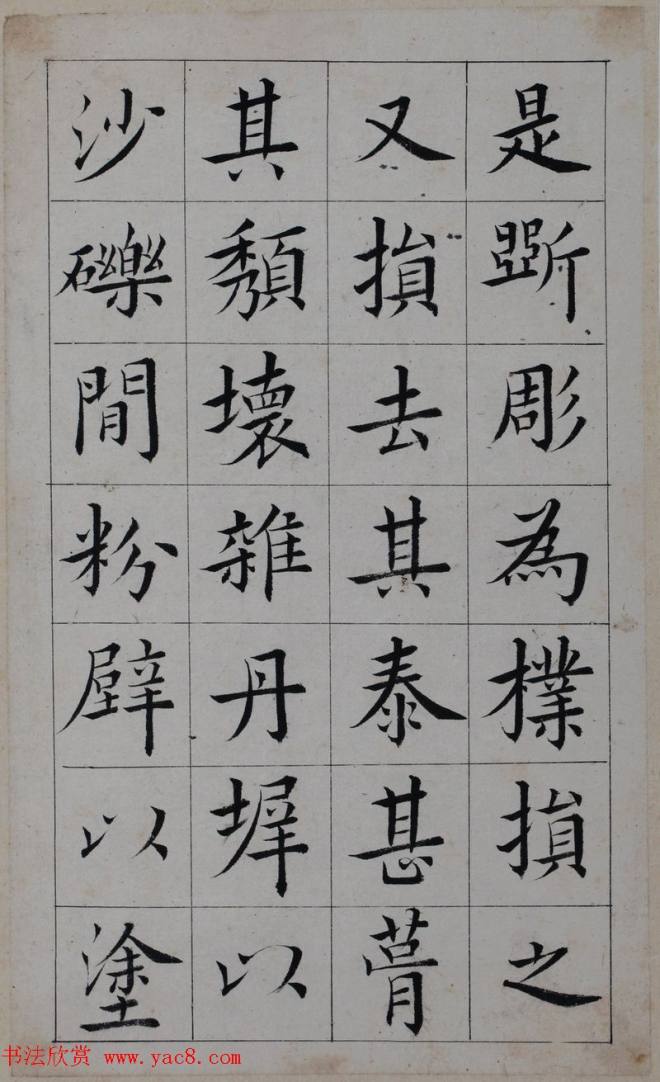 是斲彫為樸損之
又損去其泰甚葺
其頹壞雜丹墀以
沙礫閒粉壁以塗
书法欣赏 www.yac8.com